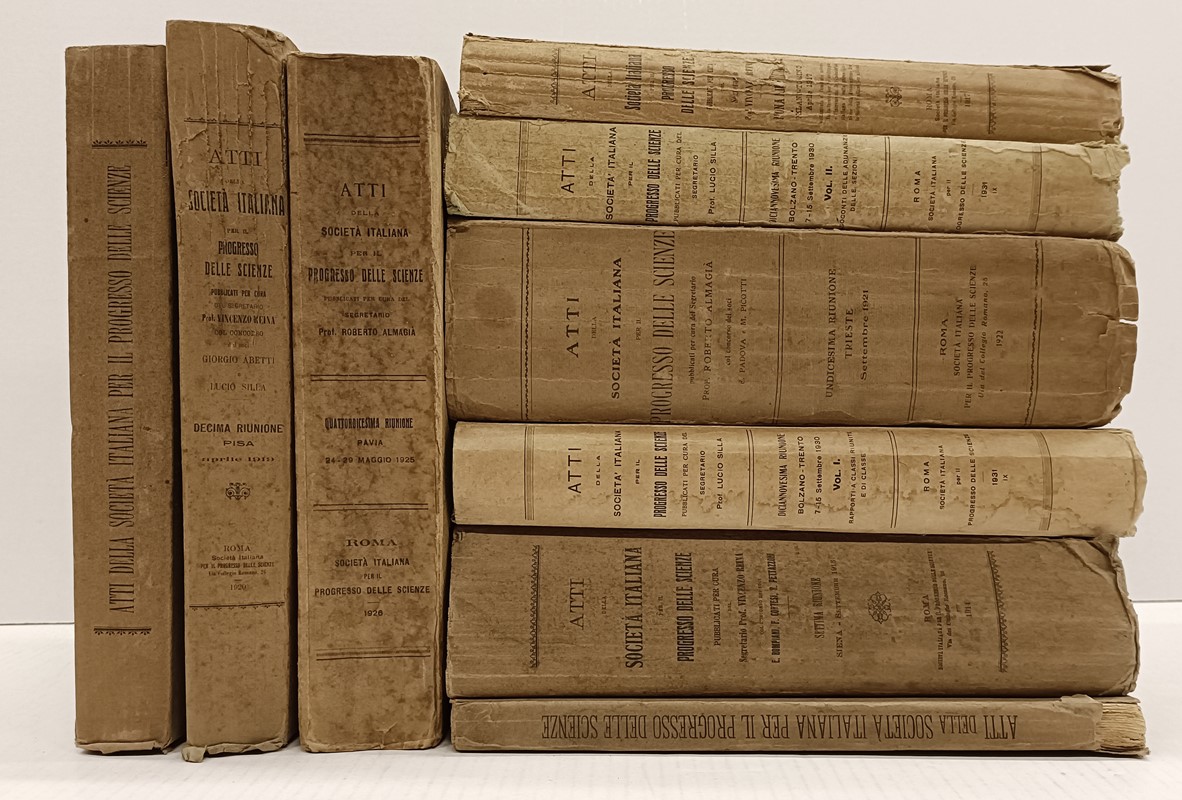 ATTI DELLA SOCIETÀ ITALIANA PER IL PROGRESSO DELLE SCIENZE
ATTI
DELLA
SOCIETÀ ITALIANA
PER IL
PROGRESSO
DELLE SCIENZE
PUBBLICATI PER CURA
DEL SEGRETARIO
Prof. VINCENZO REINA
COL CONCORSO
GIORGIO ABETTI
LUCIO SILLA
DECIMA RIUNIONE
PISA
aprile 1919
ROMA
Società Italiana
PER IL PROGRESSO DELLE SCIENZE
Via Collegio Romano, 26
1920
ATTI
DELLA
SOCIETÀ ITALIANA
PER IL
PROGRESSO DELLE SCIENZE
PUBBLICATI PER CURA DEL
SEGRETARIO
Prof. ROBERTO ALMAGIÀ
QUATTORDICESIMA RIUNIONE
PAVIA
24-29 MAGGIO 1925
ROMA
SOCIETÀ ITALIANA
PER IL
PROGRESSO DELLE SCIENZE
1926
ATTI
DELLA
Società Italiana
PER IL
PROGRESSO
DELLE SCIENZE
Aprile 1917
ROMA
ATTI
DELLA
SOCIETA' ITALIANA
PER IL
PROGRESSO DELLE SCIENZE
PUBBLICATI PER CURA DEL
SEGRETARIO
Prof. LUCIO SILLA
DICIANNOVESIMA RIUNIONE
BOLZANO-TRENTO
7-15 Settembre 1930
Vol. II.
CONTI DELLE ADUNANZE
DELLE SEZIONI
ROMA
SOCIETÀ ITALIANA
per il
PROGRESSO DELLE SCIENZE
1931
IX
ATTI
DELLA
SOCIETÀ ITALIANA
PER IL
PROGRESSO DELLE SCIENZE
pubblicati per cura del Segretario
PROF. ROBERTO ALMAGIÀ
col concorso dei soci
E. PADOVA e M. PICOTTI
UNDICESIMA RIUNIONE
TRIESTE
Settembre 1921
ROMA
SOCIETÀ ITALIANA
PER IL PROGRESSO DELLE SCIENZE
Via del Collegio Romano, 26
1922
ATTI
DELLA
SOCIETA' ITALIANA
PER IL
PROGRESSO DELLE SCIENZE
PUBBLICATI PER CURA DEL
SEGRETARIO
Prof. LUCIO SILLA
DICIANNOVESIMA RIUNIONE
BOLZANO-TRENTO
7-15 Settembre 1930
Vol. I.
RAPPORTI A CLASSI RIUNITE
E DI CLASSE
ROMA
SOCIETÀ ITALIANA
per il
PROGRESSO DELLE SCIENZE
1931
IX
ATTI
DELLA
SOCIETÀ ITALIANA
PER IL
PROGRESSO DELLE SCIENZE
PUBBLICATI PER CURA
DEL
Segretario Prof. VINCENZO REINA
SETTIMA RIUNIONE
SIENA - SETTEMBRE 1913
ROMA
1914
ATTI DELLA SOCIETÀ ITALIANA PER IL PROGRESSO DELLE SCIENZE